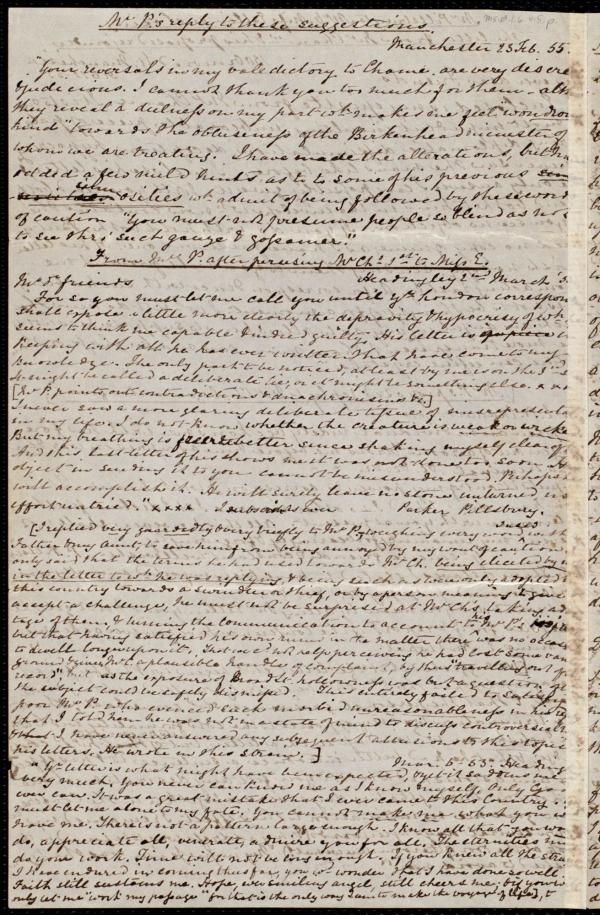 Mr. P's reply to these suggestions.
Manchester 23 Feb. 55.
"Your reversals in my valedictory to Chame. are very discre
& judicious. I cannot thank you too much for them - alth
they reveal a dulness on my part wh. makes one feel "wondrou
kind" towards the obtuseness of the Birkenhead minister of
whom we are treating. I have made the alterations, but ha
added a few mild hints as to some of his previous
osities wh. admit of being followed by these word
of caution "You must not presume people so blind as not
to see thro' such gauze & gossamer."
From Mr. P. after perusing Mr Ch's 1st to Miss E.
Headingley 2nd March
My dr. friends
For so you must let me call you until yr. London correspon
shall expose a little more clearly the depravity & hypocrisy of wh.
seems to think me capable & indeed guilty. His letter is
keeping with all he has ever written that have come to my
knowledge. The only part to be noticed, at least by me is on the 3rd
It might be called a deliberate lie, or it might be something else. x x x
[Mr P. points out contradictions & anachronisms &c.]
I never saw a more glaring deliberate tissue of misrepresentat
in my life. I do not know whether the creature is weak or wicke
But my breathing is better since shaking myself clear of
And this last letter of his shows me it was not done too soon. H
object in sending it to you cannot be misunderstood. Perhaps h
will accomplish it. He will surely leave no stone unturned, no
effort untried." x x x x I subscribe ever Parker Pillsbury.
[I replied very guardedly & very briefly to Mr P. weighing every word with
Father & my Aunt, to save him from being annoyed by my want of caution
only said that the terms he had used towards Mr Ch. being elicited by
in the letter to wh. he was replying, & being such as were only adopted in
this country towards a swindler or thief, or by a person meaning to give
accept a challenge, he must not be surprised at Mr Ch's taking ad
tage of them, & turning the communication to account to Mr P's
but that having satisfied his own mind in the matter there was no occas
to dwell longer upon it. That we cd. not help perceiving he had lost some van
ground & given Mr C. a plausible handle of complaint, by thus "travelling out of
record", but as the exposure of Broad St. hollowness was but a question of
the subject could be safely dismissed. This entirely failed to satisfy
poor Mr P. who evinced such morbid unreasonableness in his rep
that I told him he was not in a state of mind to discuss controversial
I have never answered any subsequent allusions to the topic
his letters. He wrote in this strain.]
Mar. 5th 55. Heading
"Yr. letter is what might have been expected, & yet it saddens me
very much. You never can know me as I know myself. Only Go
ever can. It was a great mistake that I ever came to this Country.
must let me alone to my fate. You cannot make me what you w
have me. There is not a pattern large enough. I know all that you wo
do, appreciate all, venerate, admire you for all. The eternities m
do your work. Time will not be long enough. If you knew all the str
I have endured in coming thus far, you wd. wonder that I have done so well
Faith still sustains me. Hope, ever smiling angel, still cheers me; but you w
only let me "work my passage" for that is the only way I am to make the voyage of life],